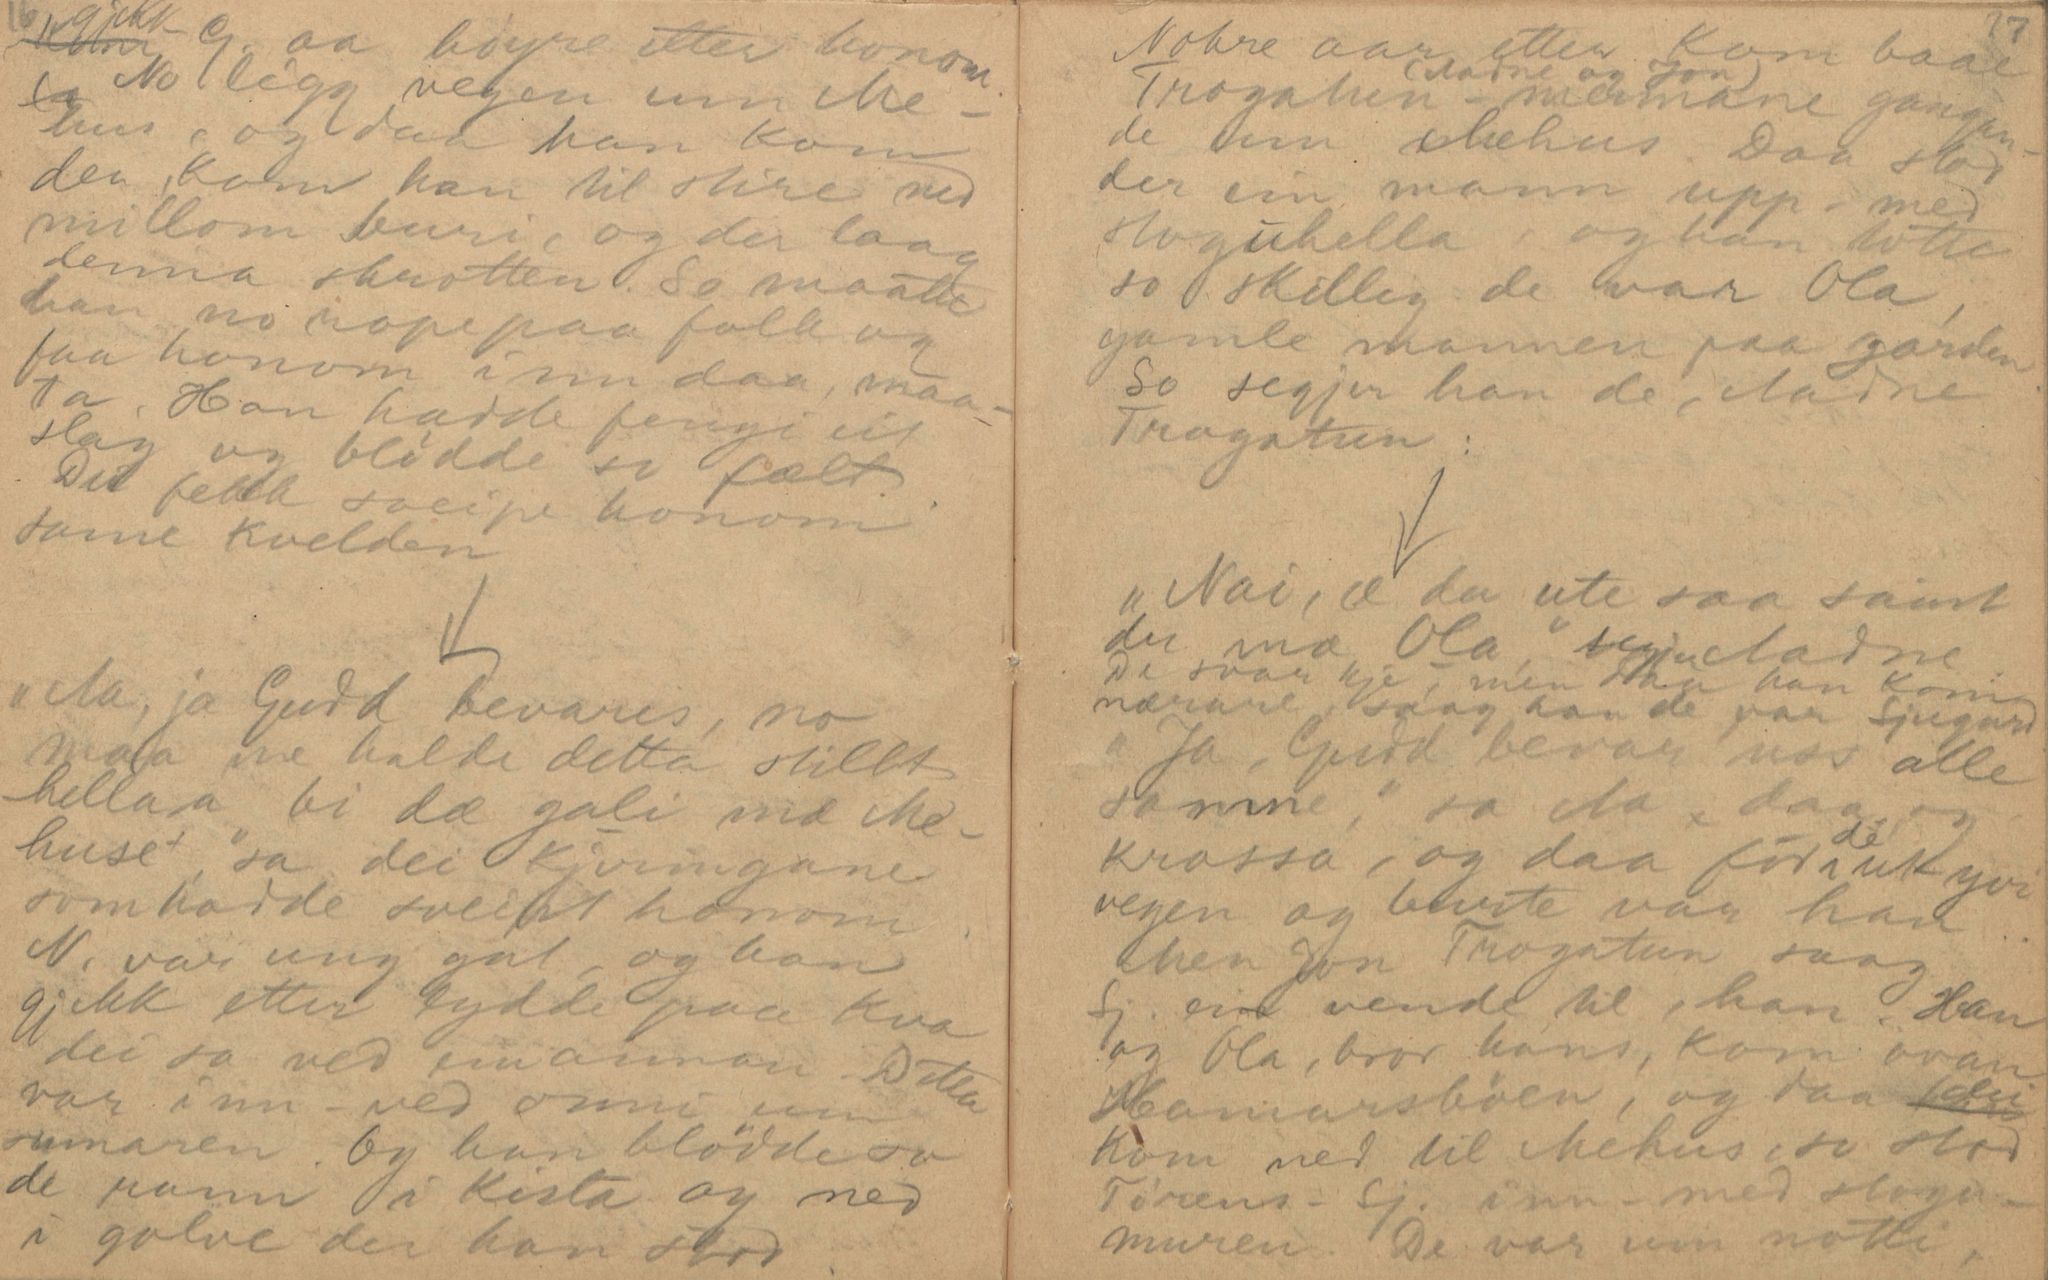 16
gjekk
G. aa høyre etter honom.
No ligg vegen um Me-
hus, og daa han kom
der, kom han til stire ned
millom buri, og der laag
denna skrotten. So maatte
han no rope paa folk og
faa honom inn daa, maa-
ta. Han hadde fengi eit
slag og blødde so fælt.
Dei fekk sveipe honom
same kvelden
"Aa, ja Gudd bevares, no
maa me halde detta stillt
hellaa bi dæ gali mæ Me-
huse", sa dei kjøringane
som hadde sveipt honom.
N. var ung gut, og han
gjekk etter lydde paa kva
dei sa ved einannan. Detta
var inn-ved onni um
sumaren. Og han blødde so
de rann i kista og ned
i golve der han stod.
17
Nokre aar etter kom baae
(Aadne og Jon)
Trogatun-mennane gangan-
de um Mehus. Daa stod
der ein mann upp-med
stoguhella, og han totte
so skilleg de var Ola,
gamle mannen paa garden.
So segjer han de, Aadne
Trogatun:
"Nai, æ du ute saa saint
du mæ Ola," segjer Aadne.
De svar kje, men daa han kom
nærare, saag han de var Sjugurd
"Ja, Gudd bevar uss alle
samne," sa Aa. daa, og
krossa, og daa før de ut yvi
vegen og burte var han.
Men Jon Trogatun saag
Sj. ein vende til, han. Han
og Ola, bror hans, kom ovan
Hamarsbøen, og daa dei
kom ned til Mehus, so stod
Tørens-Sj. inn-med stogu-
muren. De var um notti,